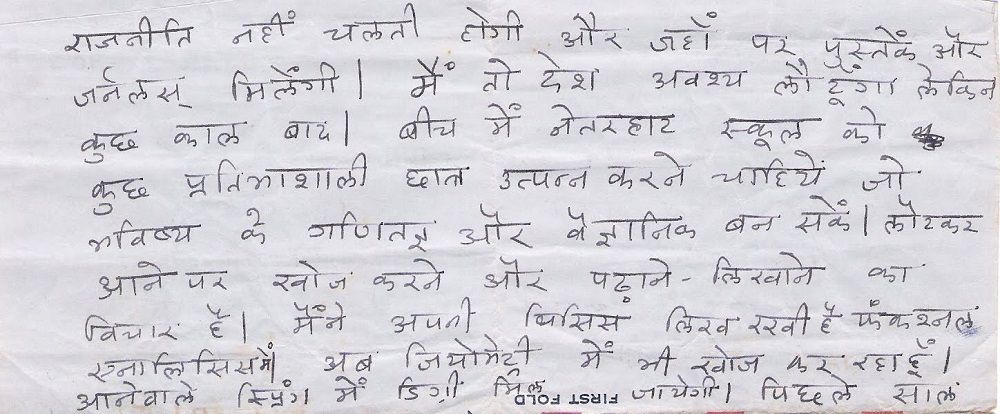 राजनीति नहीं चलती होगी और जहाँ पर पुस्तकें और
जर्नलस् मिलेंगी। मैं तो देश अवश्य लौटूंगा लेकिन
कुछ काल बाद। बीच में नेतरहाट स्कूल को
कुछ प्रतिभाशाली छात्र उत्पन्न करने चाहिये जो
भविष्य के गणितज्ञ और वैज्ञानिक बन सकें। लौटकर
आने पर खोज करने और पढ़ाने-लिखाने का
विचार है। मैंने अपनी थिसिस लिख रखी है फंक्श्नल
एनालिसिस में। अब जियोमेट्री में भी खोज कर रहा हूँ।
आनेवाले स्प्रिंग में डिग्री मिल जायेगी। पिछले साल
FIRST FOLD